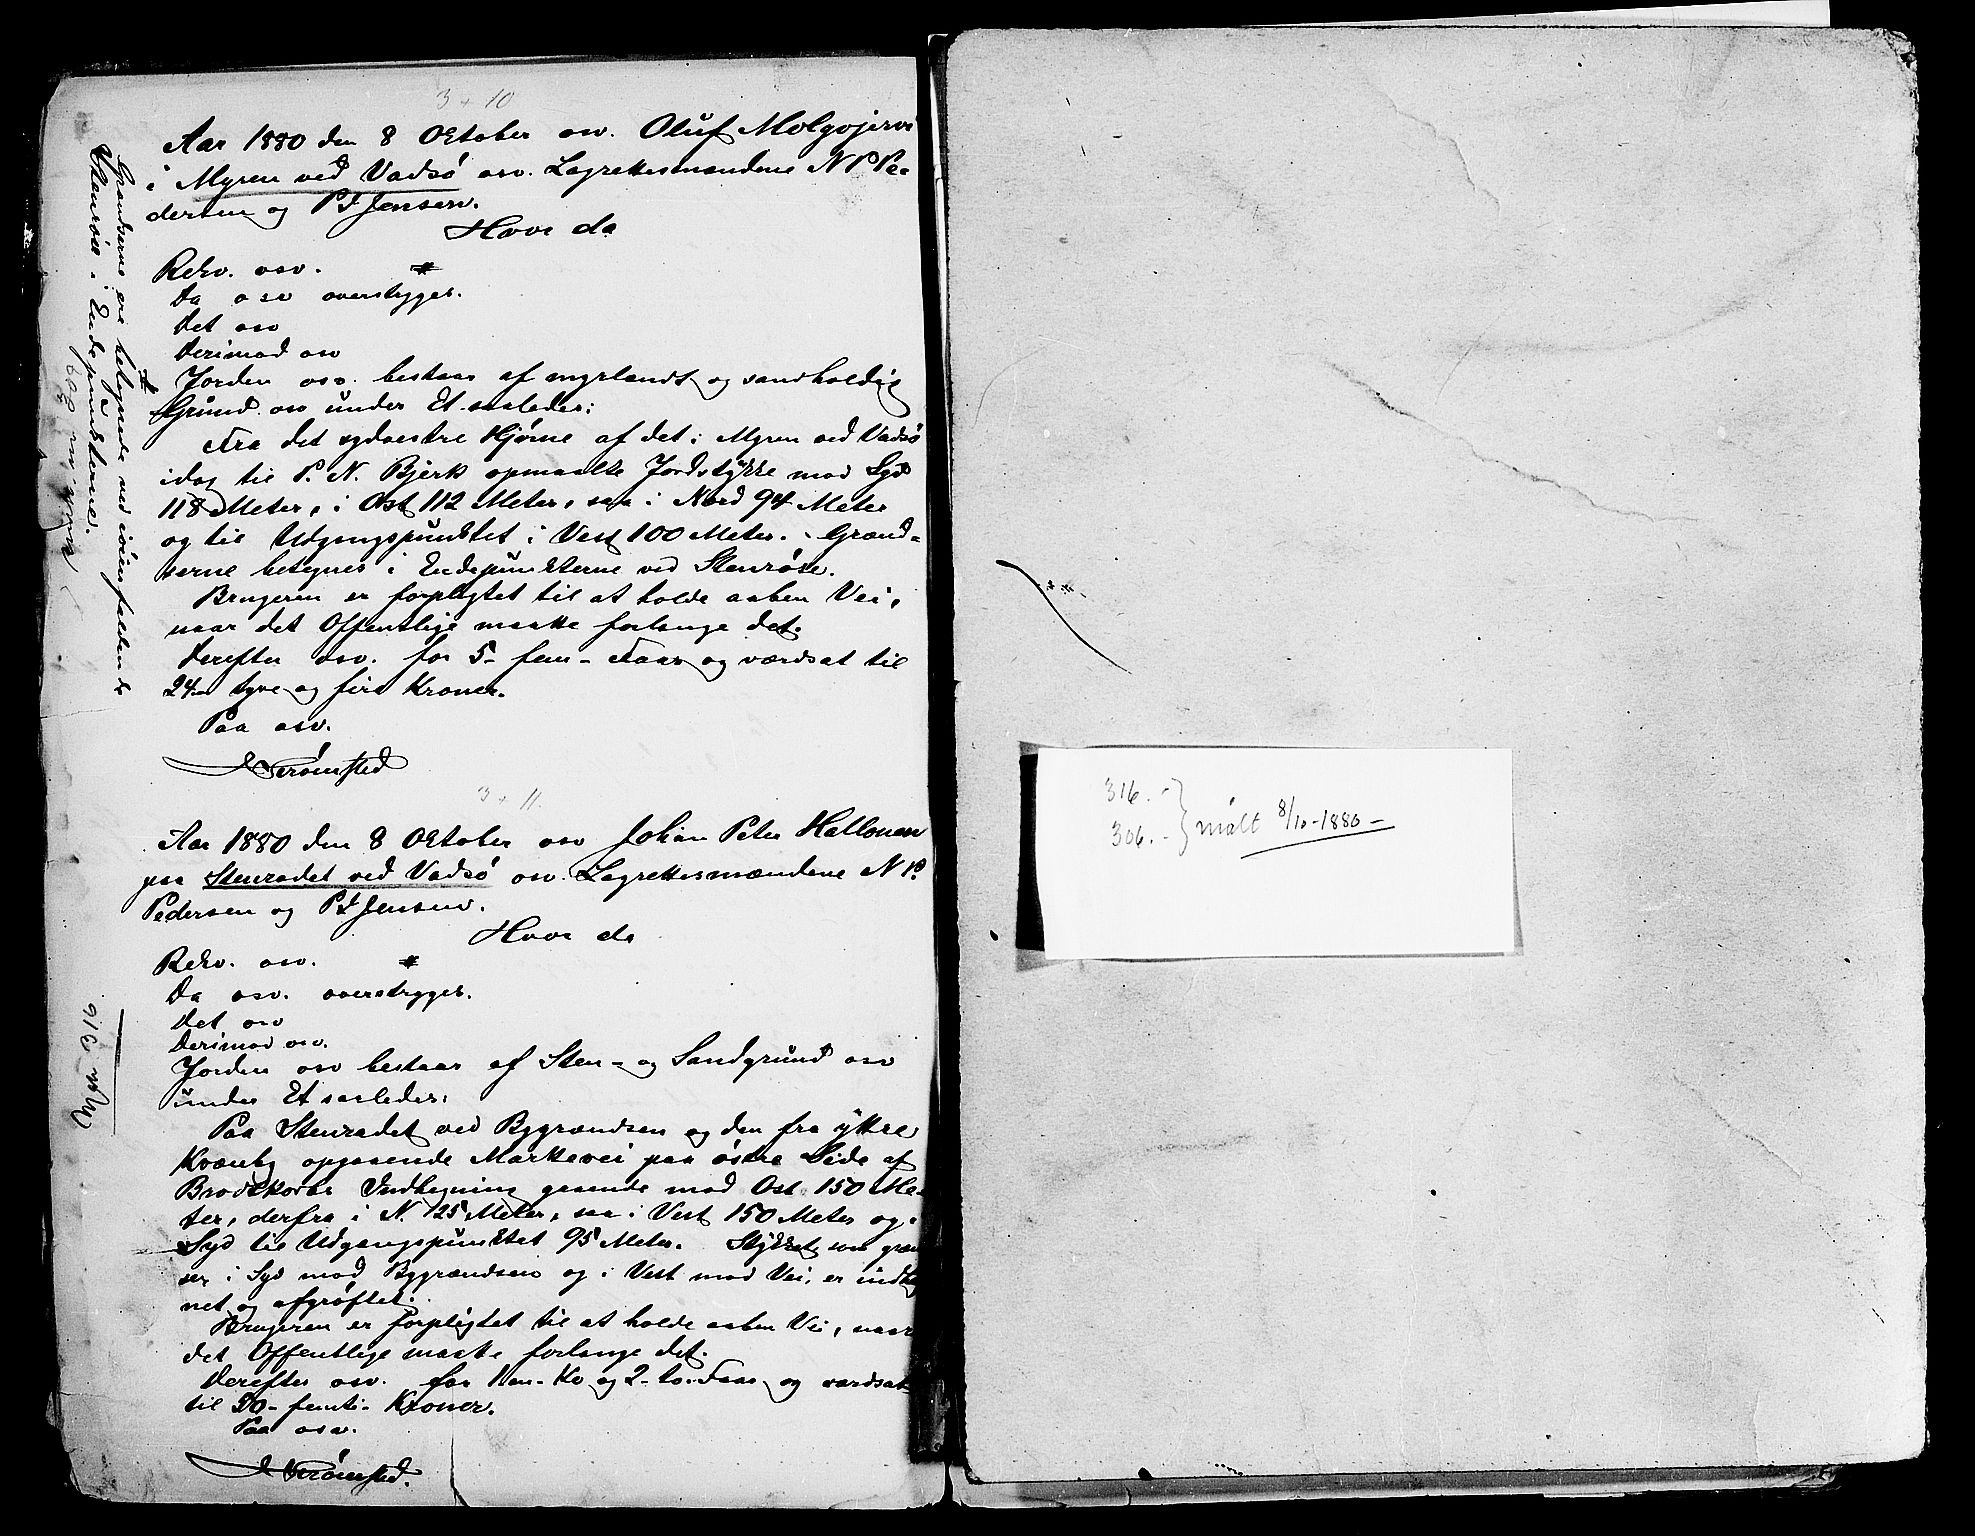 3 + 10
Aar 1880 den 8 October osv. Oluf Molgojervi
i Myren ved Vadsö osv. Lagrettesmændene N P Pe-
dersen og P J Jensen.
Hvor da
Rekv. osv. #
Da osv overstryges.
Det osv
Derimod osv
# Jorden osv. bestaar af myrlandt og sandholdig
Grund osv under Et saaledes:
Fra det sydvestre Hjörne af det i Myren ved Vadsö
idag til P. N. Bjerk opmaalte Jordstykke mod Syd
118 Meter, i Öst 112 Meter, saa i Nord 94 Meter
og til Udgangspunktet i Vest 100 Meter. - Grænd-
serne betegnes i Endepunkterne ved Stenröse.
Brugeren er forpligtet til at holde aaben Vei,
naar det Offentlige maatte forlange det.
Derefter osv. for 5 - fem - Faar og værdsat til
24 - tyve og fire Kroner.
Paa osv.
Strömsted
Grændserne ere betegnede ved iöienfaldende
Stenröse i Endepunkterne.
3 + 11.
Aar 1880 den 8 October osv Johan Peter Hallonen
paa Stenradet ved Vadsö osv. Lagrettesmændene N P.
Pedersen og P J Jensen.
Hvor da
Rekv. osv. #
Da osv. overstryges.
Det osv
Derimod osv.
Jorden osv bestaar af Sten- og Sandgrund osv
under Et saaledes:
Paa Stenradet ved Bygrændsen og den fra yttre
Kvænby opgaaende Markevei paa östre Side af
Brodtkorbs Indhegning gaaende mod Öst 150 Me-
ter, derfra i N. 125 Meter, saa i Vest 150 Meter og i
Syd til Udgangspunktet 95 Meter. Stykket, som græn
ser i Syd mod Bygrændsen og i Vest mod Vei, er indheg
net og afgröftet.
Brugeren er forpligtet til at holde aaben Vei, naar
det Offentlige maatte forlange det.
Derefter osv. for 1 en - Ko og 2 - to - Faar og værdsat
til 50 - femti - Kroner.
Paa osv.
Strömsted.
316
316. -
306. - } målt 8/10-1880 -